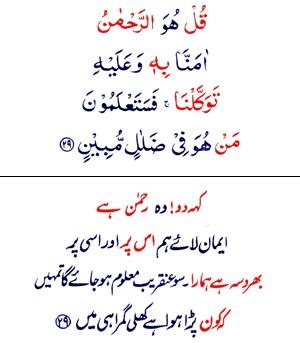 قُلْ هُوَ الرَّحْمٰنُ
اٰمَنَّا بِهٖ وَعَلَيْهِ
تَوَكَّلْنَا ۚ فَسَتَعْلَمُوْنَ
مَنْ هُوَ فِيْ ضَلٰلٍ مُّبِيْنٍ ﴿۲۹﴾
کہہ دو! وہ رحمٰن ہے
ایمان لائے ہم اس پر اور اسی پر
بھروسہ ہے ہمارا۔ سو عنقریب معلوم ہو جائے گا تمہیں
کہ کون پڑا ہوا ہے کھلی گمراہی میں ﴿۲۹﴾